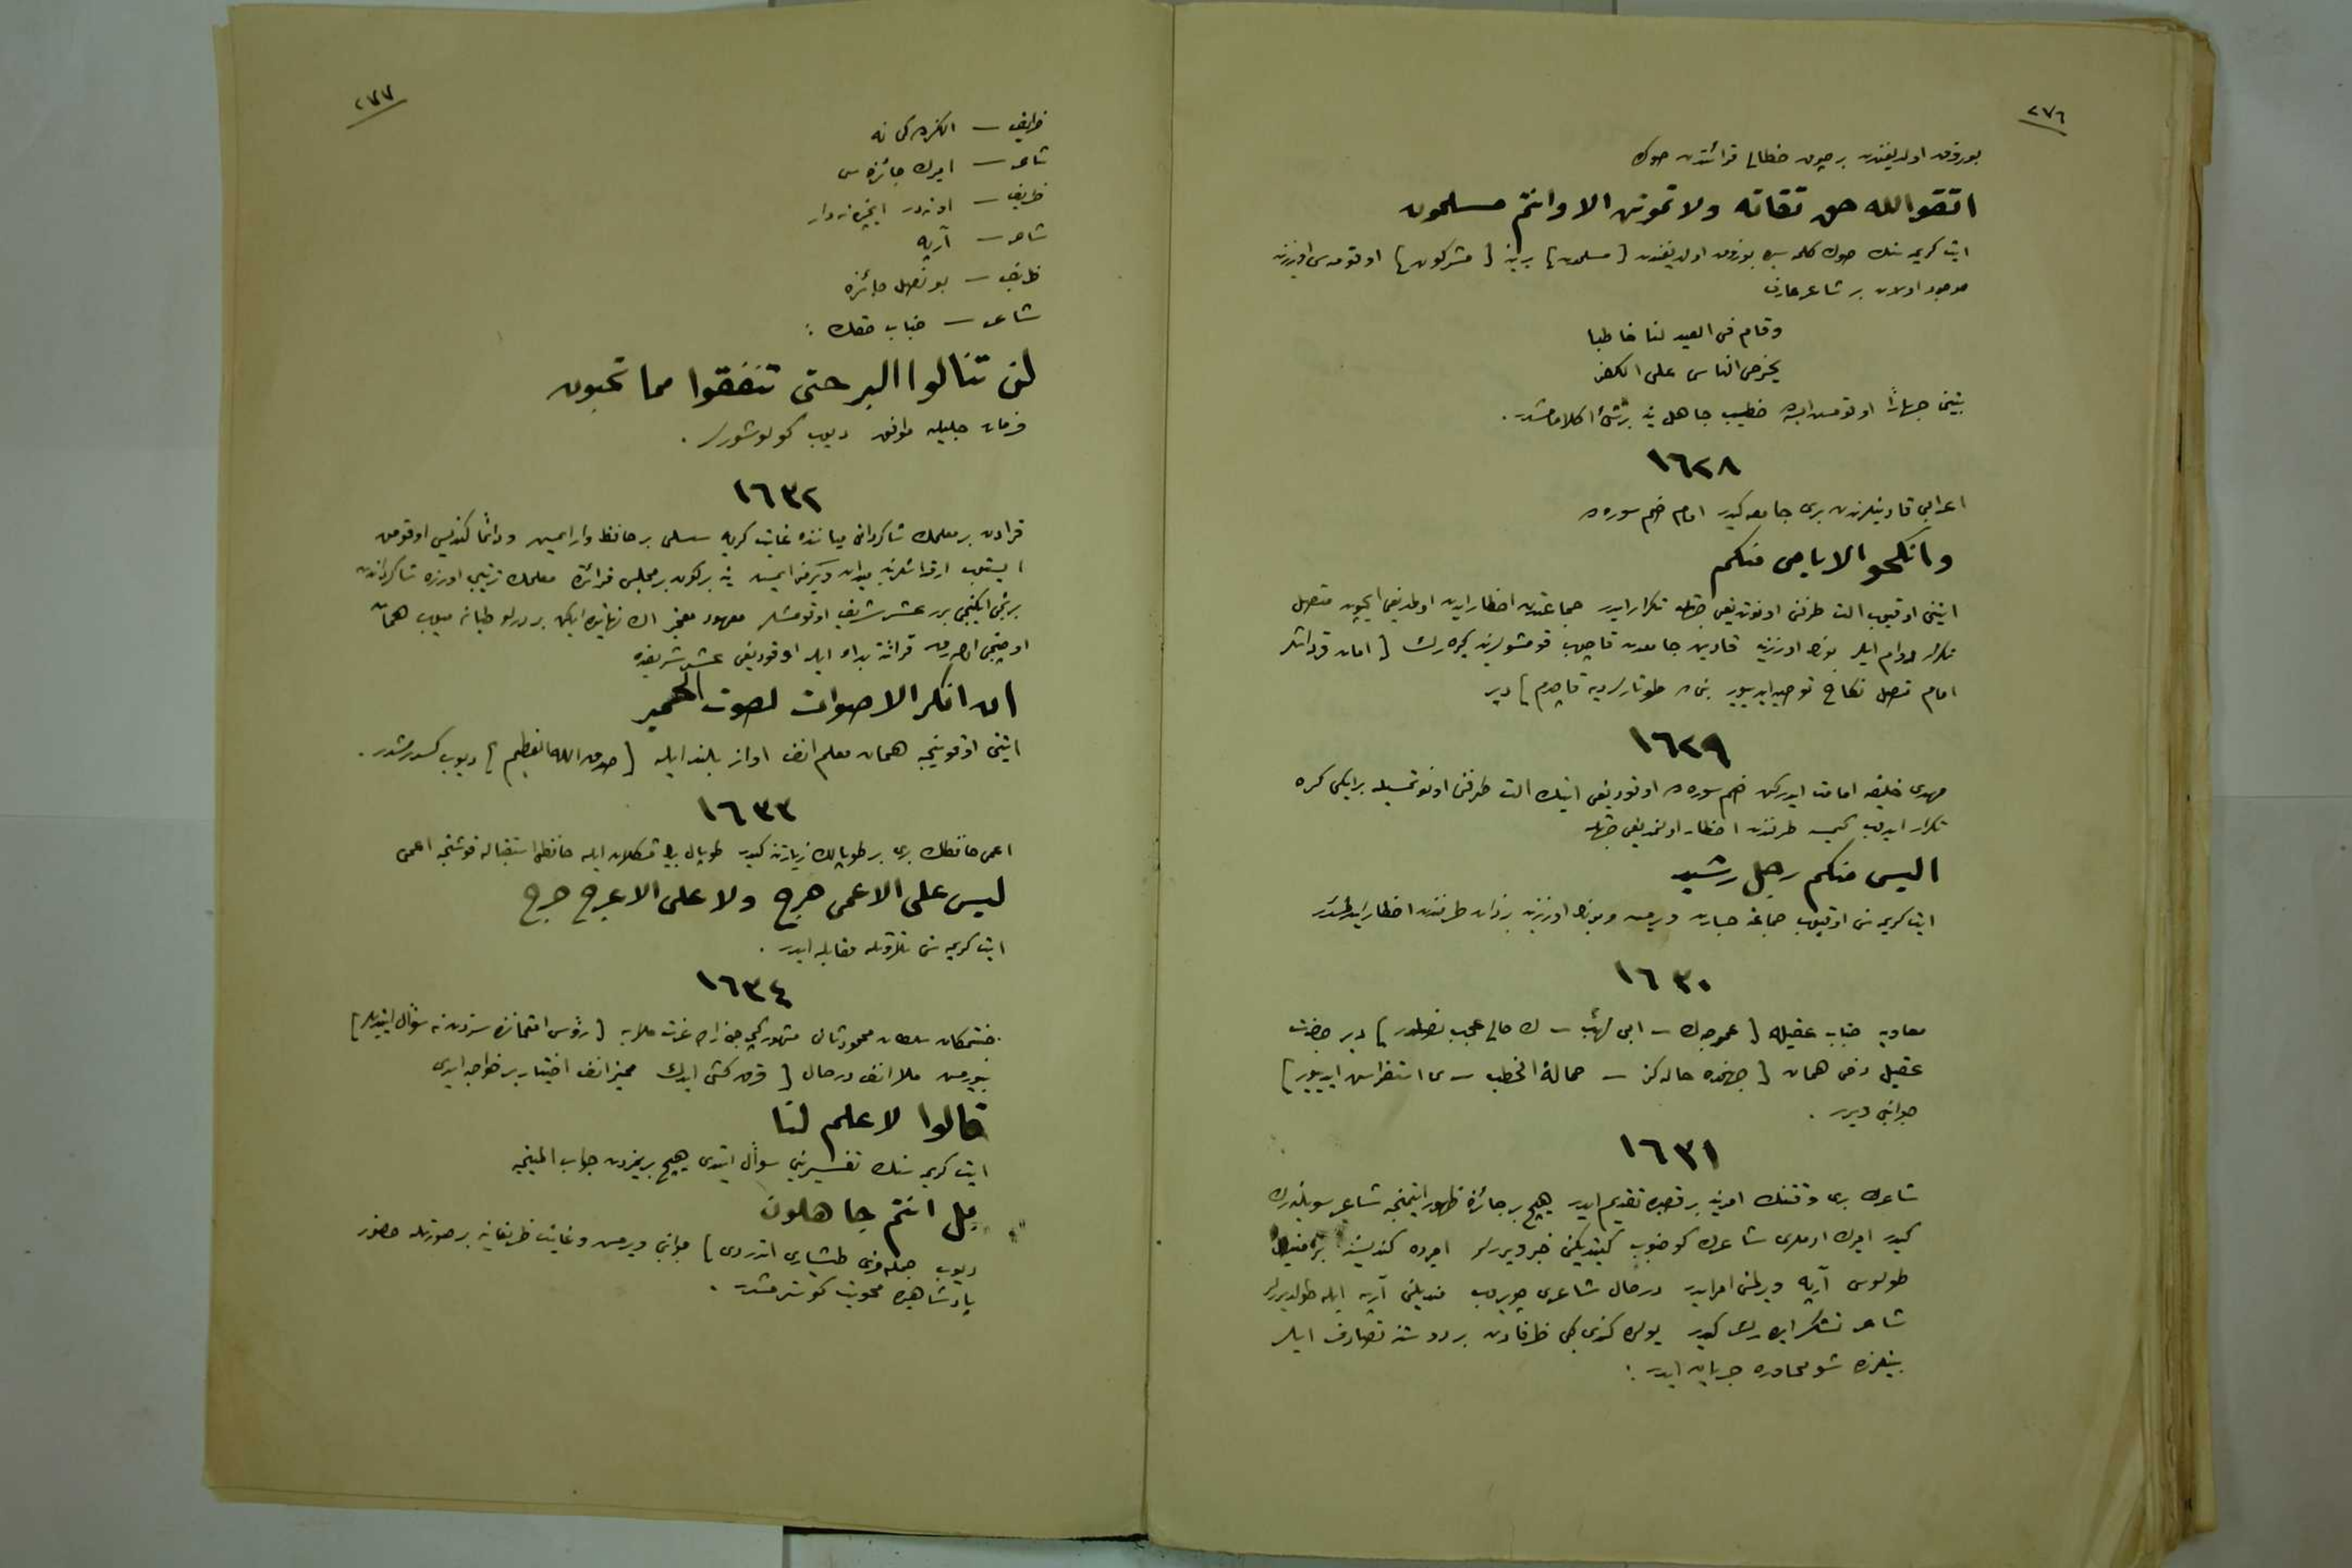 ٢٧٦
بوزوق اولدیغندن بر چوق خطالی قرائتدن صوڭ
اتقوا الله حق تقاته ولا تموتن الا وانتم مسلمون
ایت کریمه سنك صوڭ کلمه سی بوزوق اولدیغندن [مسلمون] یرینه [مشرکون] اوقومسی اوزرینه
موجود اولان بر شاعر عارف
وقام فی العید لنا خاطبا
یحرض الناس علی الکفر
بیتنی جهاراً اوقومسیله خطیب جاهل
١٦٢٨
اعرابی قادینلرندن بری جامعه کیدر امام ضم سوره ده
وانکحوا الایامی منکم
ایتنی اوقیوب الت طرفنی اونوتدیغی جهتله تکرار ایدر جماعتدن اخطار ایدن اولمدیغی ایچون متصل
تکراره دوام ایلر بونك اوزرینه قادین جامعدن قاچوب قومشولرینه کیده رك [امان قرداشلر
امام متصل نکاح توصیه ایدییور بنی ده طوتارلر دیه قاچدم] دیر
١٦٢٩
مهدی خلیفه امامت ایدرکن ضم سوره ده اوقودیغی ایتك الت طرفنی اونوتمسیله بر ایکی کره
تکرار ایدوب کیمسه طرفندن اخطار اولنمدیغی جهتله
الیس منکم رجل رشید
ایت کریمه سنی اوقیوب جماعته جسارت ویرمش وبونك اوزرینه بر ذات طرفندن اخطار ایدلمشدر
١٦٣٠
معاویه جناب عقیله [عموجه ڭ – ابی لهب – ڭ حالی عجب نصلدر] دیر حضرت
عقیل دخی همان [جهنمده خاله کز – حمالة الحطب – ی استفراش ایدییور]
جوابنی ویرر .
١٦٣١
شاعرك بری وقتنك امیرینه بر قصیده تقدیم ایدر هیچ بر جائزه ظهور ایتمنجه شاعر سویلنه رك
کیدر امیرك ادملری شاعرك کوجنوب کیتدیکنی خبر ویررلر امیر ده کندیسنه بر مندیل
طولوسی آرپه ویرلمسنی امر ایدر درحال شاعری چویروب مندیلنی آرپه ایله طولدیررلر
شاعر تشکر ایده رك کیدر یولده کندی کبی ظرفادن بر دوستنه تصادف ایلر
بینلرنده شو محاوره جریان ایدر :
٢٧٧
ظریف — الکزده کی نه
شاعر — امیرك جائزه سی
ظریف — او نه در ایچنده نه وار
شاعر — آرپه
ظریف — بو نصل جائزه
شاعر — جناب حقك :
لن تنالوا البر حتی تنفقوا مما تحبون
فرمان جلیلنه موافق دیوب کولوشورلر .
١٦٣٢
قرادن بر معلمك شاکردانی میاننده غایت کریه سسلی بر حافظ وار ایمش ودائما کندیسی اوقومق
ایستیوب ارقداشلرینه میدان ویرمز ایمش ینه بر کون بر مجلس قرائتده معلمك ترتیبی اوزره شاکرداندن
برنجی ایکنجی بر عشر شریف اوقومشلر معهود مغبر اڭ نهایتده ایکن بر درلو طیانه میوب همان
اوچنجی اوله رق قرائته بدأ ایله اوقودیغی عشر شریفده
ان انکر الاصوات لصوت الحمیر
ایتنی اوقوینجه همان معلم افندی اواز بلند ایله [صدق الله العظیم] دیوب کسدرمشدر .
١٦٣٣
اعمی حافظك بری بر طوپالك زیارتنه کیدر طوپال بیك مشکلات ایله حافظی استقباله قوشنجه اعمی
لیس علی الاعمی حرج ولا علی الاعرج حرج
ایت کریمه سنی تلاوتله مقابله ایدر .
١٦٣٤
جنتمکان سلطان محمود ثانی مشهور کچه جی زاده عزت ملایه [رؤس امتحاننده سزدن نه سؤال ایتدیلر]
بیورمش ملا افندی درحال [قرق کشی ایدك ممیز افندی اختیار بر خواجه ایدی
قالوا لا علم لنا
ایت کریمه سنك تفسیرینی سؤال ایتدی هیچ بریمزدن جواب المینجه
بل انتم جاهلون
دیوب جمله مزی طیشاری اتدردی] جوابنی ویرمش وغایت ظریفانه بر صورتله حضور
پادشاهیده محویت کوسترمشدر .